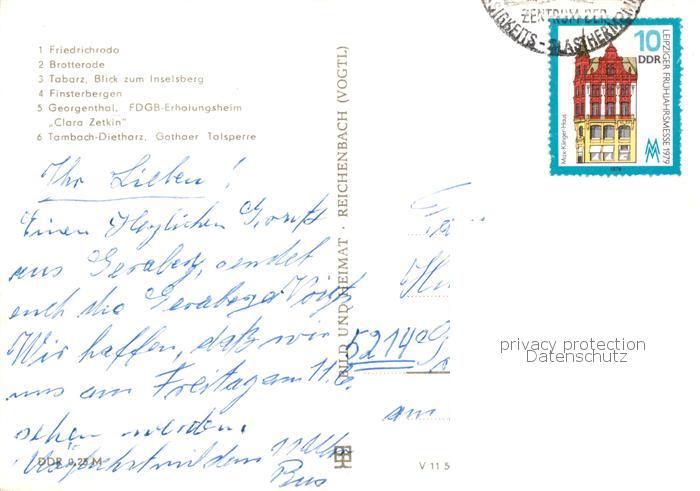 1 Friedrichroda
2 Brotterode
3 Tabarz, Blick zum Inselsberg
4 Finsterbergen
5 Georgenthal, FDGB-Erholungsheim
„Clara Zetkin"
6 Tambach-Dietharz, Gothaer Talsperre
Ihr Lieben!
Einen Herzlichen Gruß
aus Geraberg, sendet
euch die Geraberger
Wir hoffen, daß wir
uns am Freitag am 11.6.
sehen werden.
mit dem 11 Uhr
Bus
DDR 0,25 M
BILD UND HEIMAT · REICHENBACH (VOGTL)
V 11 5
5214
am
ZENTRUM DER
GLASTHERMOM
10
DDR
LEIPZIGER FRÜHJAHRSMESSE 1979
Max-Klinger-Haus
1979
privacy protection
Datenschutz